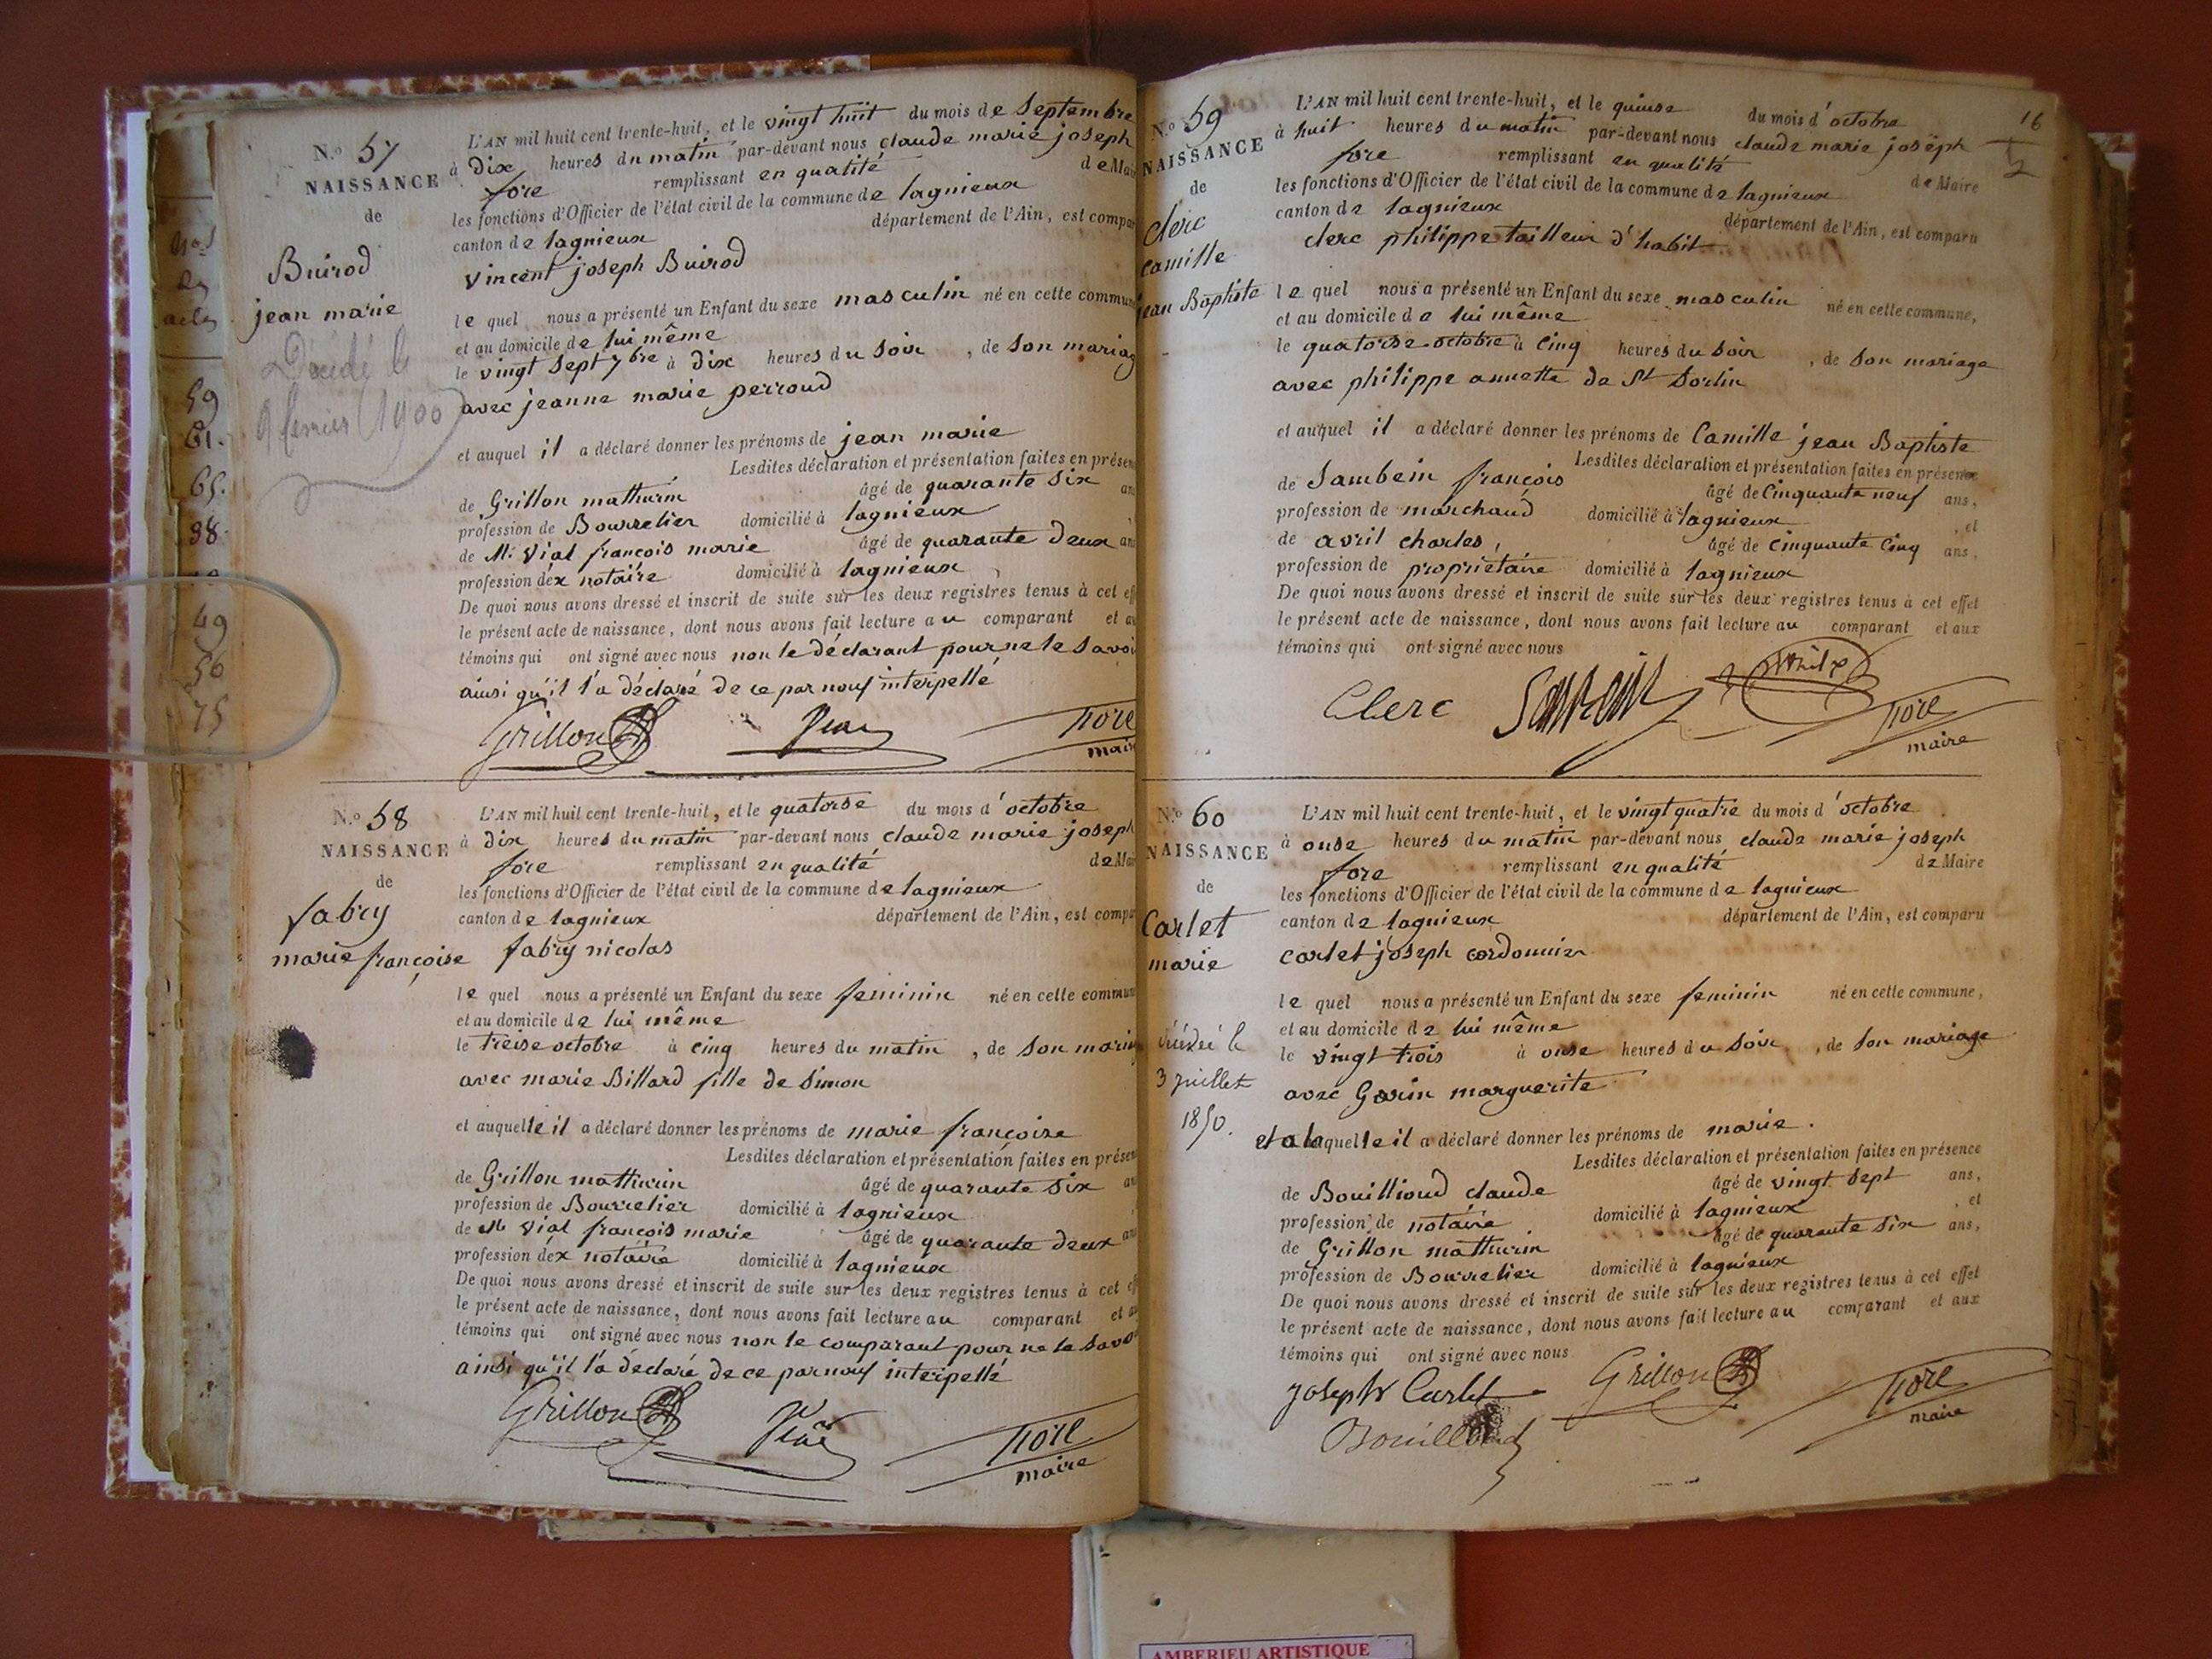 N.o 57
NAISSANCE
de
Buirod
jean marie
Décédé le
9 fevrier (1900)
L'AN mil huit cent trente-huit, et le vingt huit du mois de Septembre
à Dix heures du matin par-devant nous claude marie joseph
fore remplissant en qualité de Mai
les fonctions d'Officier de l'état civil de la commune de lagnieux
canton de lagnieux département de l'Ain, est compar
vincent joseph Buirod
le quel nous a présenté un Enfant du sexe masculin né en cette commun
et au domicile de lui même
le vingt sept 7bre à dix heures du soir , de son mariag
avec jeanne marie perroud
et auquel il a déclaré donner les prénoms de jean marie
Lesdites déclaration et présentation faites en présen
de Grillon mathurin âgé de quarante six an
profession de Bourrelier domicilié à lagnieux
de M. Vial françois marie âgé de quarante deux ans
profession d'ex notaire domicilié à lagnieux
De quoi nous avons dressé et inscrit de suite sur les deux registres tenus à cet eff
le présent acte de naissance, dont nous avons fait lecture au comparant et au
témoins qui ont signé avec nous non le déclarant pour ne le savoi
ainsi qu'il l'a déclaré de ce par nous interpellé
Grillon Vial fore
maire
N.o 58
NAISSANCE
de
fabry
marie françoise
L'AN mil huit cent trente-huit, et le quatorse du mois d'octobre
à dix heures du matin par-devant nous claude marie joseph
fore remplissant en qualité de Mai
les fonctions d'Officier de l'état civil de la commune de lagnieux
canton de lagnieux département de l'Ain, est compar
fabry nicolas
le quel nous a présenté un Enfant du sexe feminin né en cette commun
et au domicile de lui même
le treise octobre à cinq heures du matin , de son maria
avec marie Billard fille de simon
et auquelle il a déclaré donner les prénoms de marie françoise
Lesdites déclaration et présentation faites en présen
de Grillon mathurin âgé de quarante six an
profession de Bourrelier domicilié à lagnieux
de M. Vial françois marie âgé de quarante deux ans
profession d'ex notaire domicilié à lagnieux
De quoi nous avons dressé et inscrit de suite sur les deux registres tenus à cet eff
le présent acte de naissance, dont nous avons fait lecture au comparant et au
témoins qui ont signé avec nous non le comparant pour ne le savoi
ainsi qu'il l'a déclaré de ce par nous interpellé
Grillon Vial fore
maire
16
N.o 59
NAISSANCE
de
clerc
camille
jean Baptiste
L'AN mil huit cent trente-huit, et le quinse du mois d'octobre
à huit heures du matin par-devant nous claude marie joseph
fore remplissant en qualité de Maire
les fonctions d'Officier de l'état civil de la commune de lagnieux
canton de lagnieux département de l'Ain, est comparu
clerc philippe tailleur d'habit
le quel nous a présenté un Enfant du sexe masculin né en cette commune,
et au domicile de lui même
le quatorse octobre à cinq heures du soir , de son mariage
avec philippe annette de St Sorlin
et auquel il a déclaré donner les prénoms de Camille jean Baptiste
Lesdites déclaration et présentation faites en présence
de Sambein françois âgé de Cinquante neuf ans,
profession de marchand domicilié à lagnieux , et
de avril charles, âgé de cinquante cinq ans,
profession de propriétaire domicilié à lagnieux
De quoi nous avons dressé et inscrit de suite sur les deux registres tenus à cet effet
le présent acte de naissance, dont nous avons fait lecture au comparant et aux
témoins qui ont signé avec nous
Clerc Sambein fore
maire
N.o 60
NAISSANCE
de
Carlet
marie
Décédée le
3 juillet
1850.
L'AN mil huit cent trente-huit, et le vingt quatre du mois d'octobre
à onse heures du matin par-devant nous claude marie joseph
fore remplissant en qualité de Maire
les fonctions d'Officier de l'état civil de la commune de lagnieux
canton de lagnieux département de l'Ain, est comparu
carlet joseph cordonnier
le quel nous a présenté un Enfant du sexe feminin né en cette commune,
et au domicile de lui même
le vingt trois à onse heures du soir , de son mariage
avec Garin marguerite
et a laquelle il a déclaré donner les prénoms de marie.
Lesdites déclaration et présentation faites en présence
de Bouillioud claude âgé de vingt sept ans,
profession de notaire domicilié à lagnieux , et
de Grillon mathurin âgé de quarante six ans,
profession de Bourrelier domicilié à lagnieux
De quoi nous avons dressé et inscrit de suite sur les deux registres tenus à cet effet
le présent acte de naissance, dont nous avons fait lecture au comparant et aux
témoins qui ont signé avec nous
joseph Carlet Grillon fore
maire
Bouillioud
59
61.
65.
38.
49
56
75
AMBERIEU ARTISTIQUE